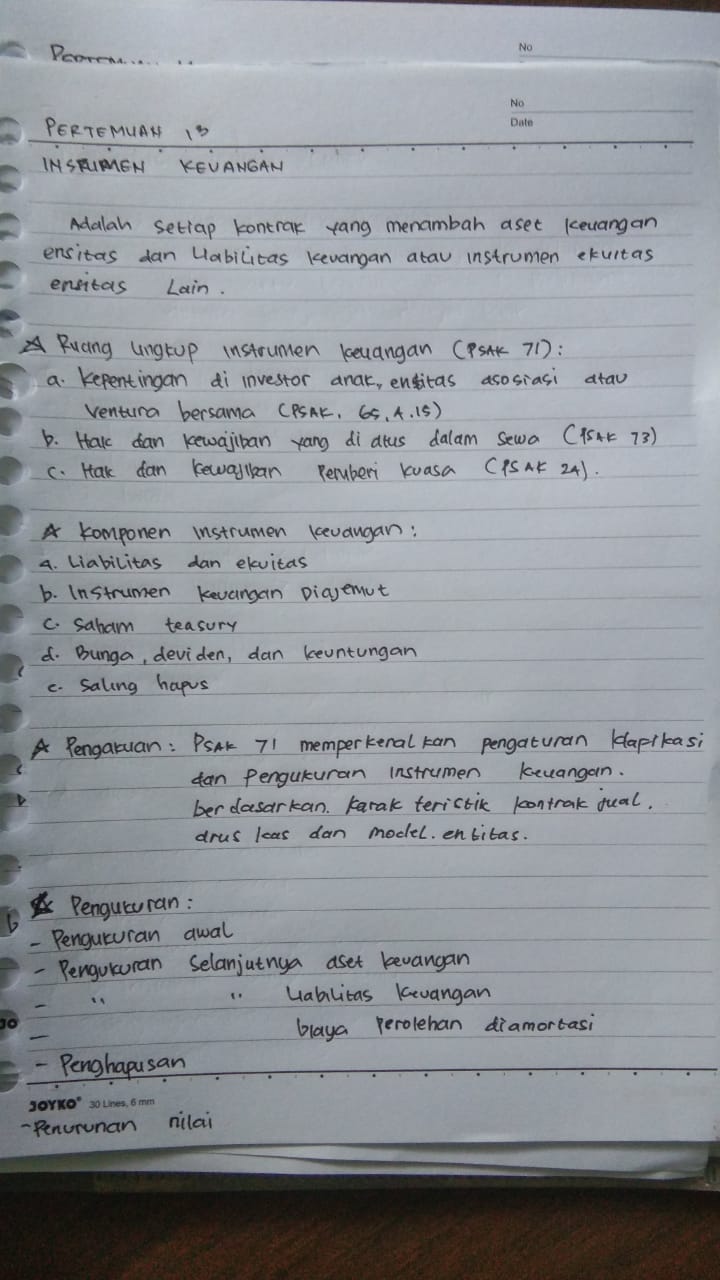 No
No
PERTEMUAN 13
Date
INSRUMEN KEUANGAN
Adalah setiap kontrak yang menambah aset keuangan
ensitas dan liabilitas keuangan atau instrumen ekuitas
ensitas Lain.
Ruang lingkup instrumen keuangan (PSAK 71):
a. kepentingan di investor anak, ensitas asosiasi atau
Ventura bersama (PSAK, 65, 4, 15)
b. Hak dan kewajiban yang di atus dalam sewa (PSAK 73)
c. Hak dan kewajiban Pemberi kuasa (PSAK 24).
komponen instrumen keuangan:
a. Liabilitas dan ekuitas
b. Instrumen keuangan Diajemut
c. Saham teasury
d. Bunga, deviden, dan keuntungan
e. Saling hapus
Pengakuan: PSAK 71 memperkenalkan pengaturan klapikasi
dan Pengukuran instrumen keuangan.
berdasarkan. karak teristik kontrak jual,
drus kas dan model. entitas.
Pengukuran:
- Pengukuran awal
- Pengukuran Selanjutnya aset keuangan
- " " Liabilitas keuangan
- biaya Perolehan diamortasi
- Penghapusan
JOYKO 30 Lines, 6 mm
-Penurunan nilai